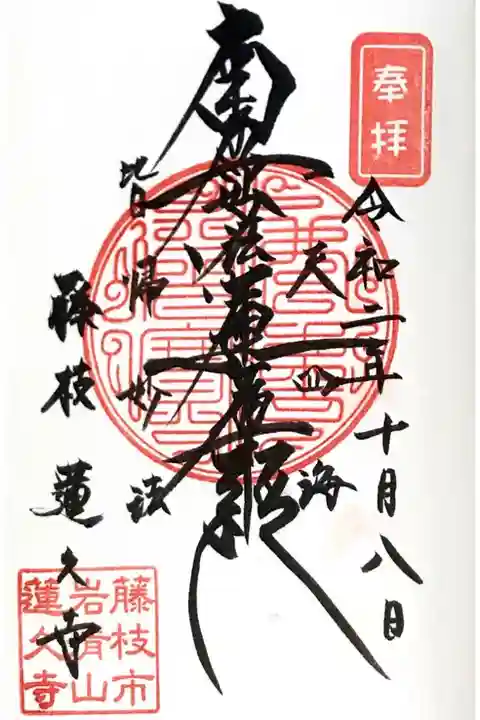 奉拝
令和二年十月八日
一天四海
南無妙法蓮華経
皆帰妙法
藤枝 蓮久寺
藤枝市
岩清山
蓮久寺